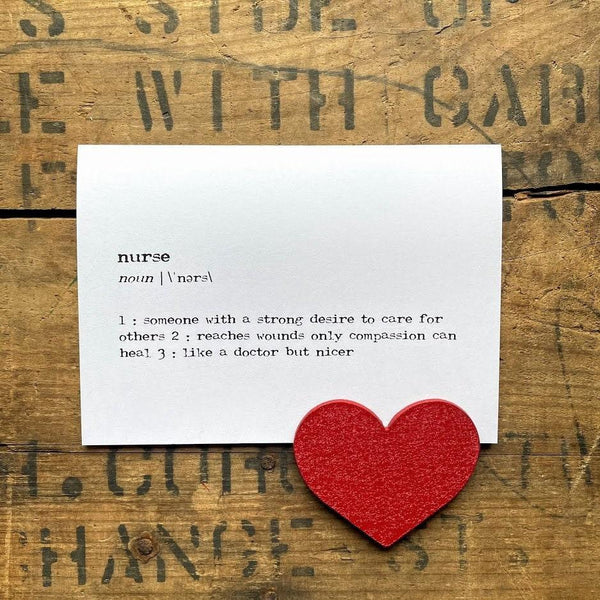 SIDE UP
WITH CAR
nurse
noun | \ˈnərs\
1 : someone with a strong desire to care for
others 2 : reaches wounds only compassion can
heal 3 : like a doctor but nicer